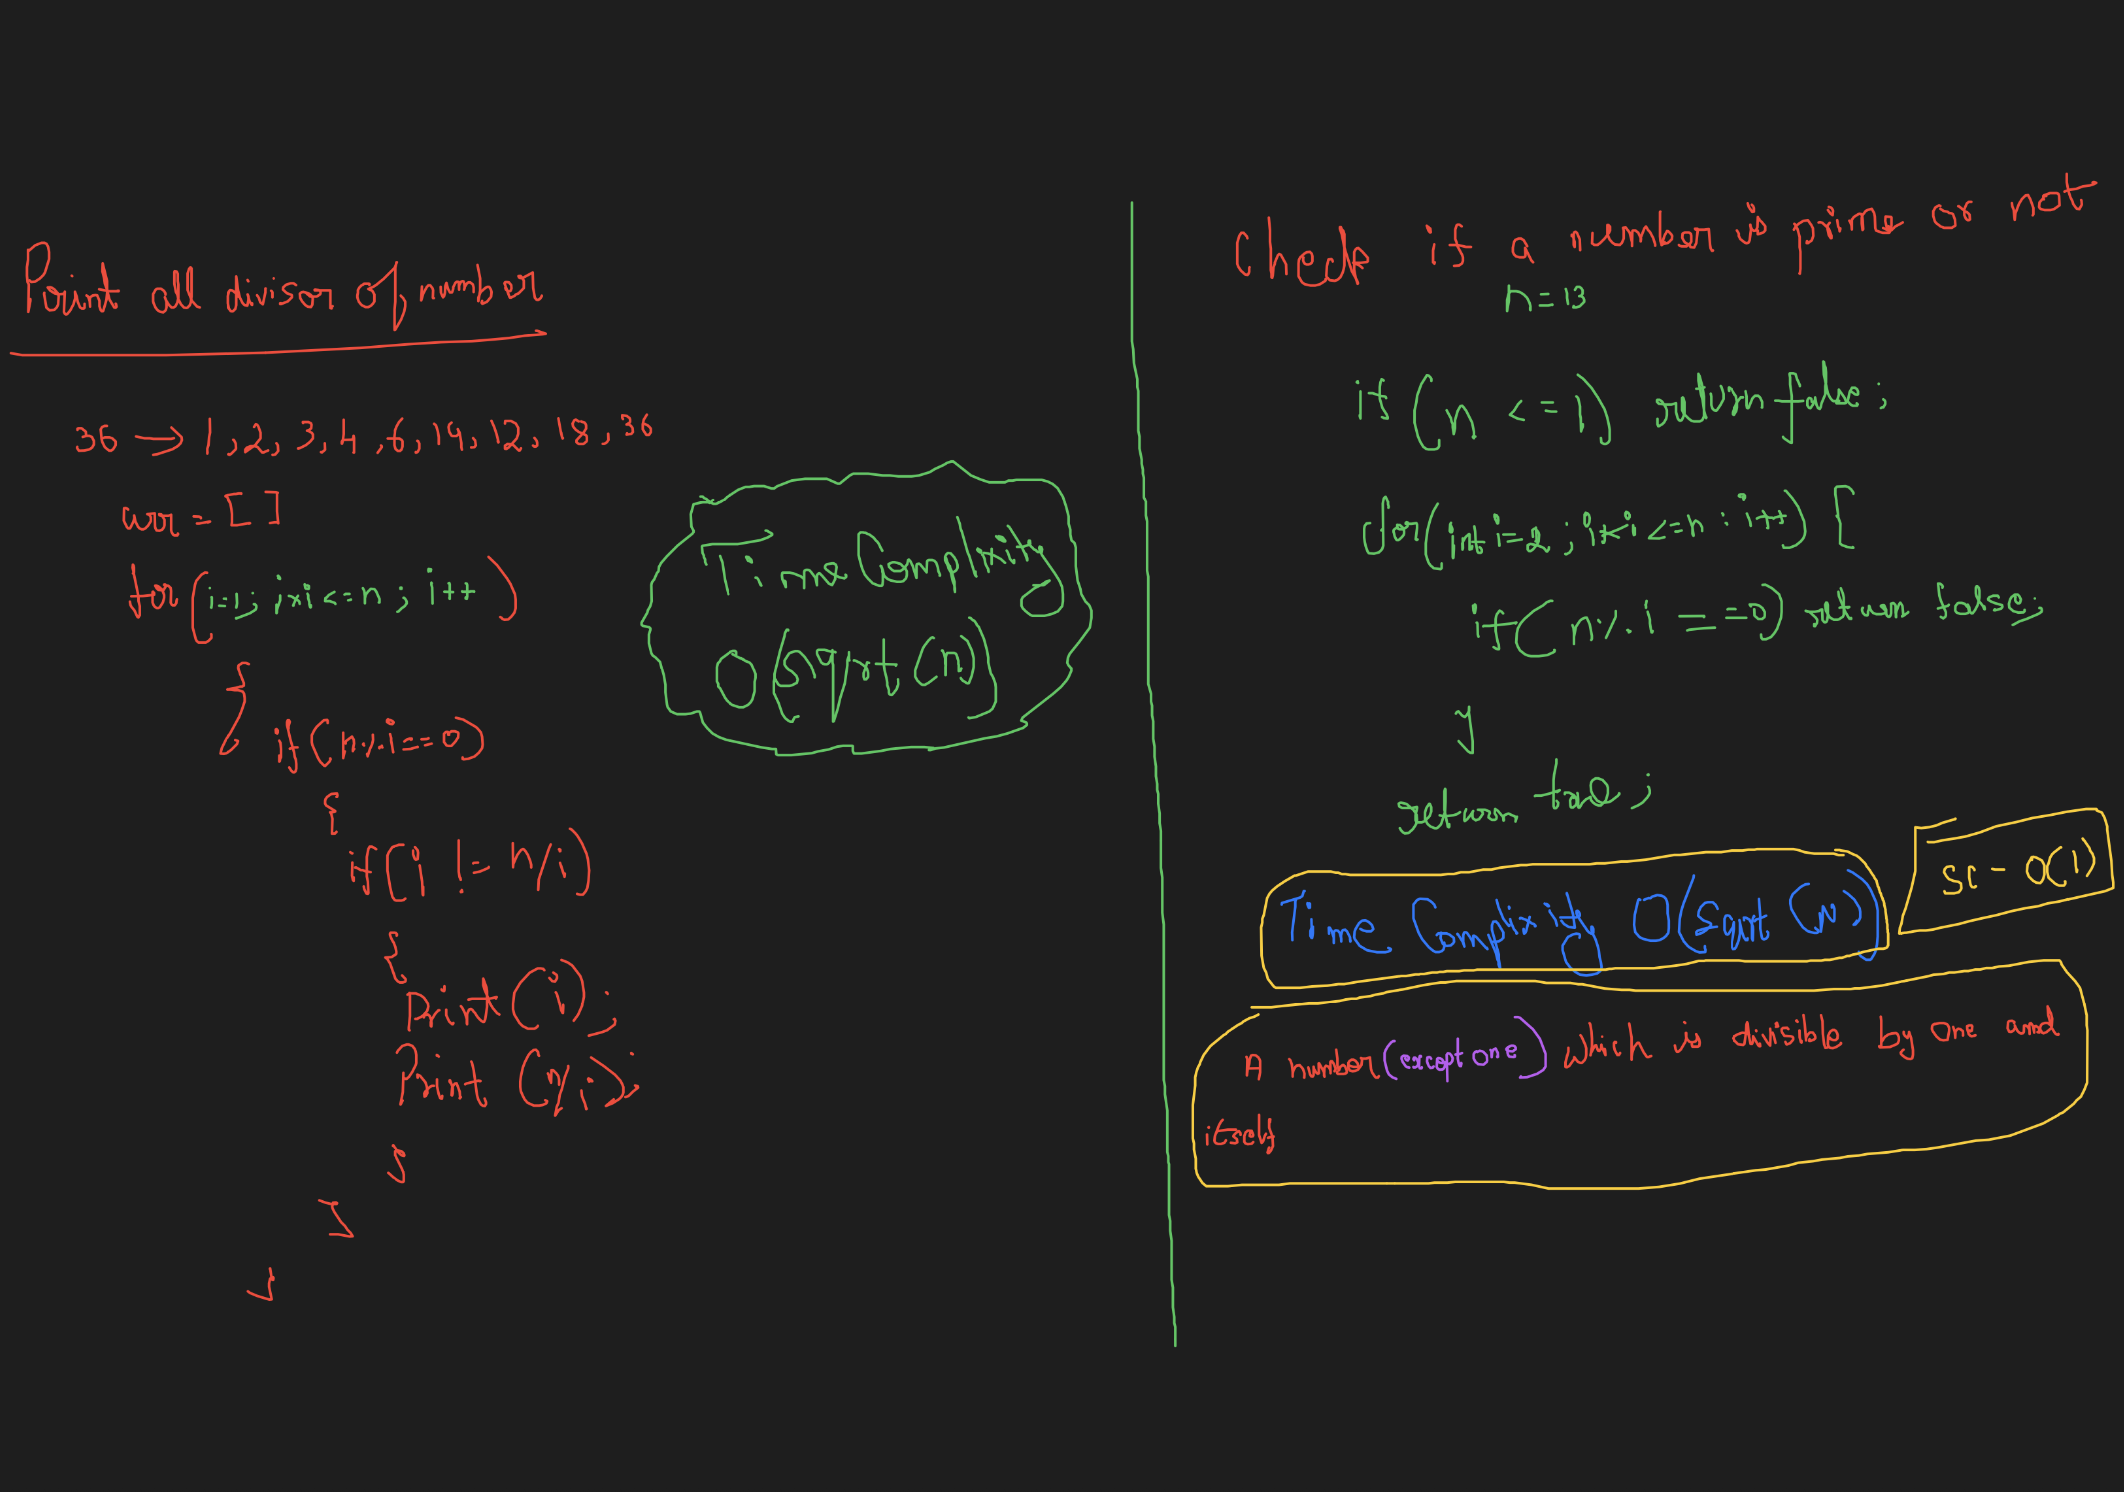 Print all divisor of number
36 → 1, 2, 3, 4, 6, 19, 12, 18, 36
arr = [ ]
for (i=1; i*i <= n; i++)
{
if (n%i==0)
{
if (i != n/i)
{
Print (i);
Print (n/i);
}
}
}
Time Complixity
O(sqrt(n))
Check if a number is prime or not
n=13
if (n <= 1) return false;
for(int i=2; i*i <=n; i++) [
if (n%i == =0) return false;
}
return true;
Time Complixity O(Sqrt (N))
SC - O(1)
A number (except one) which is divisible by one and
itself